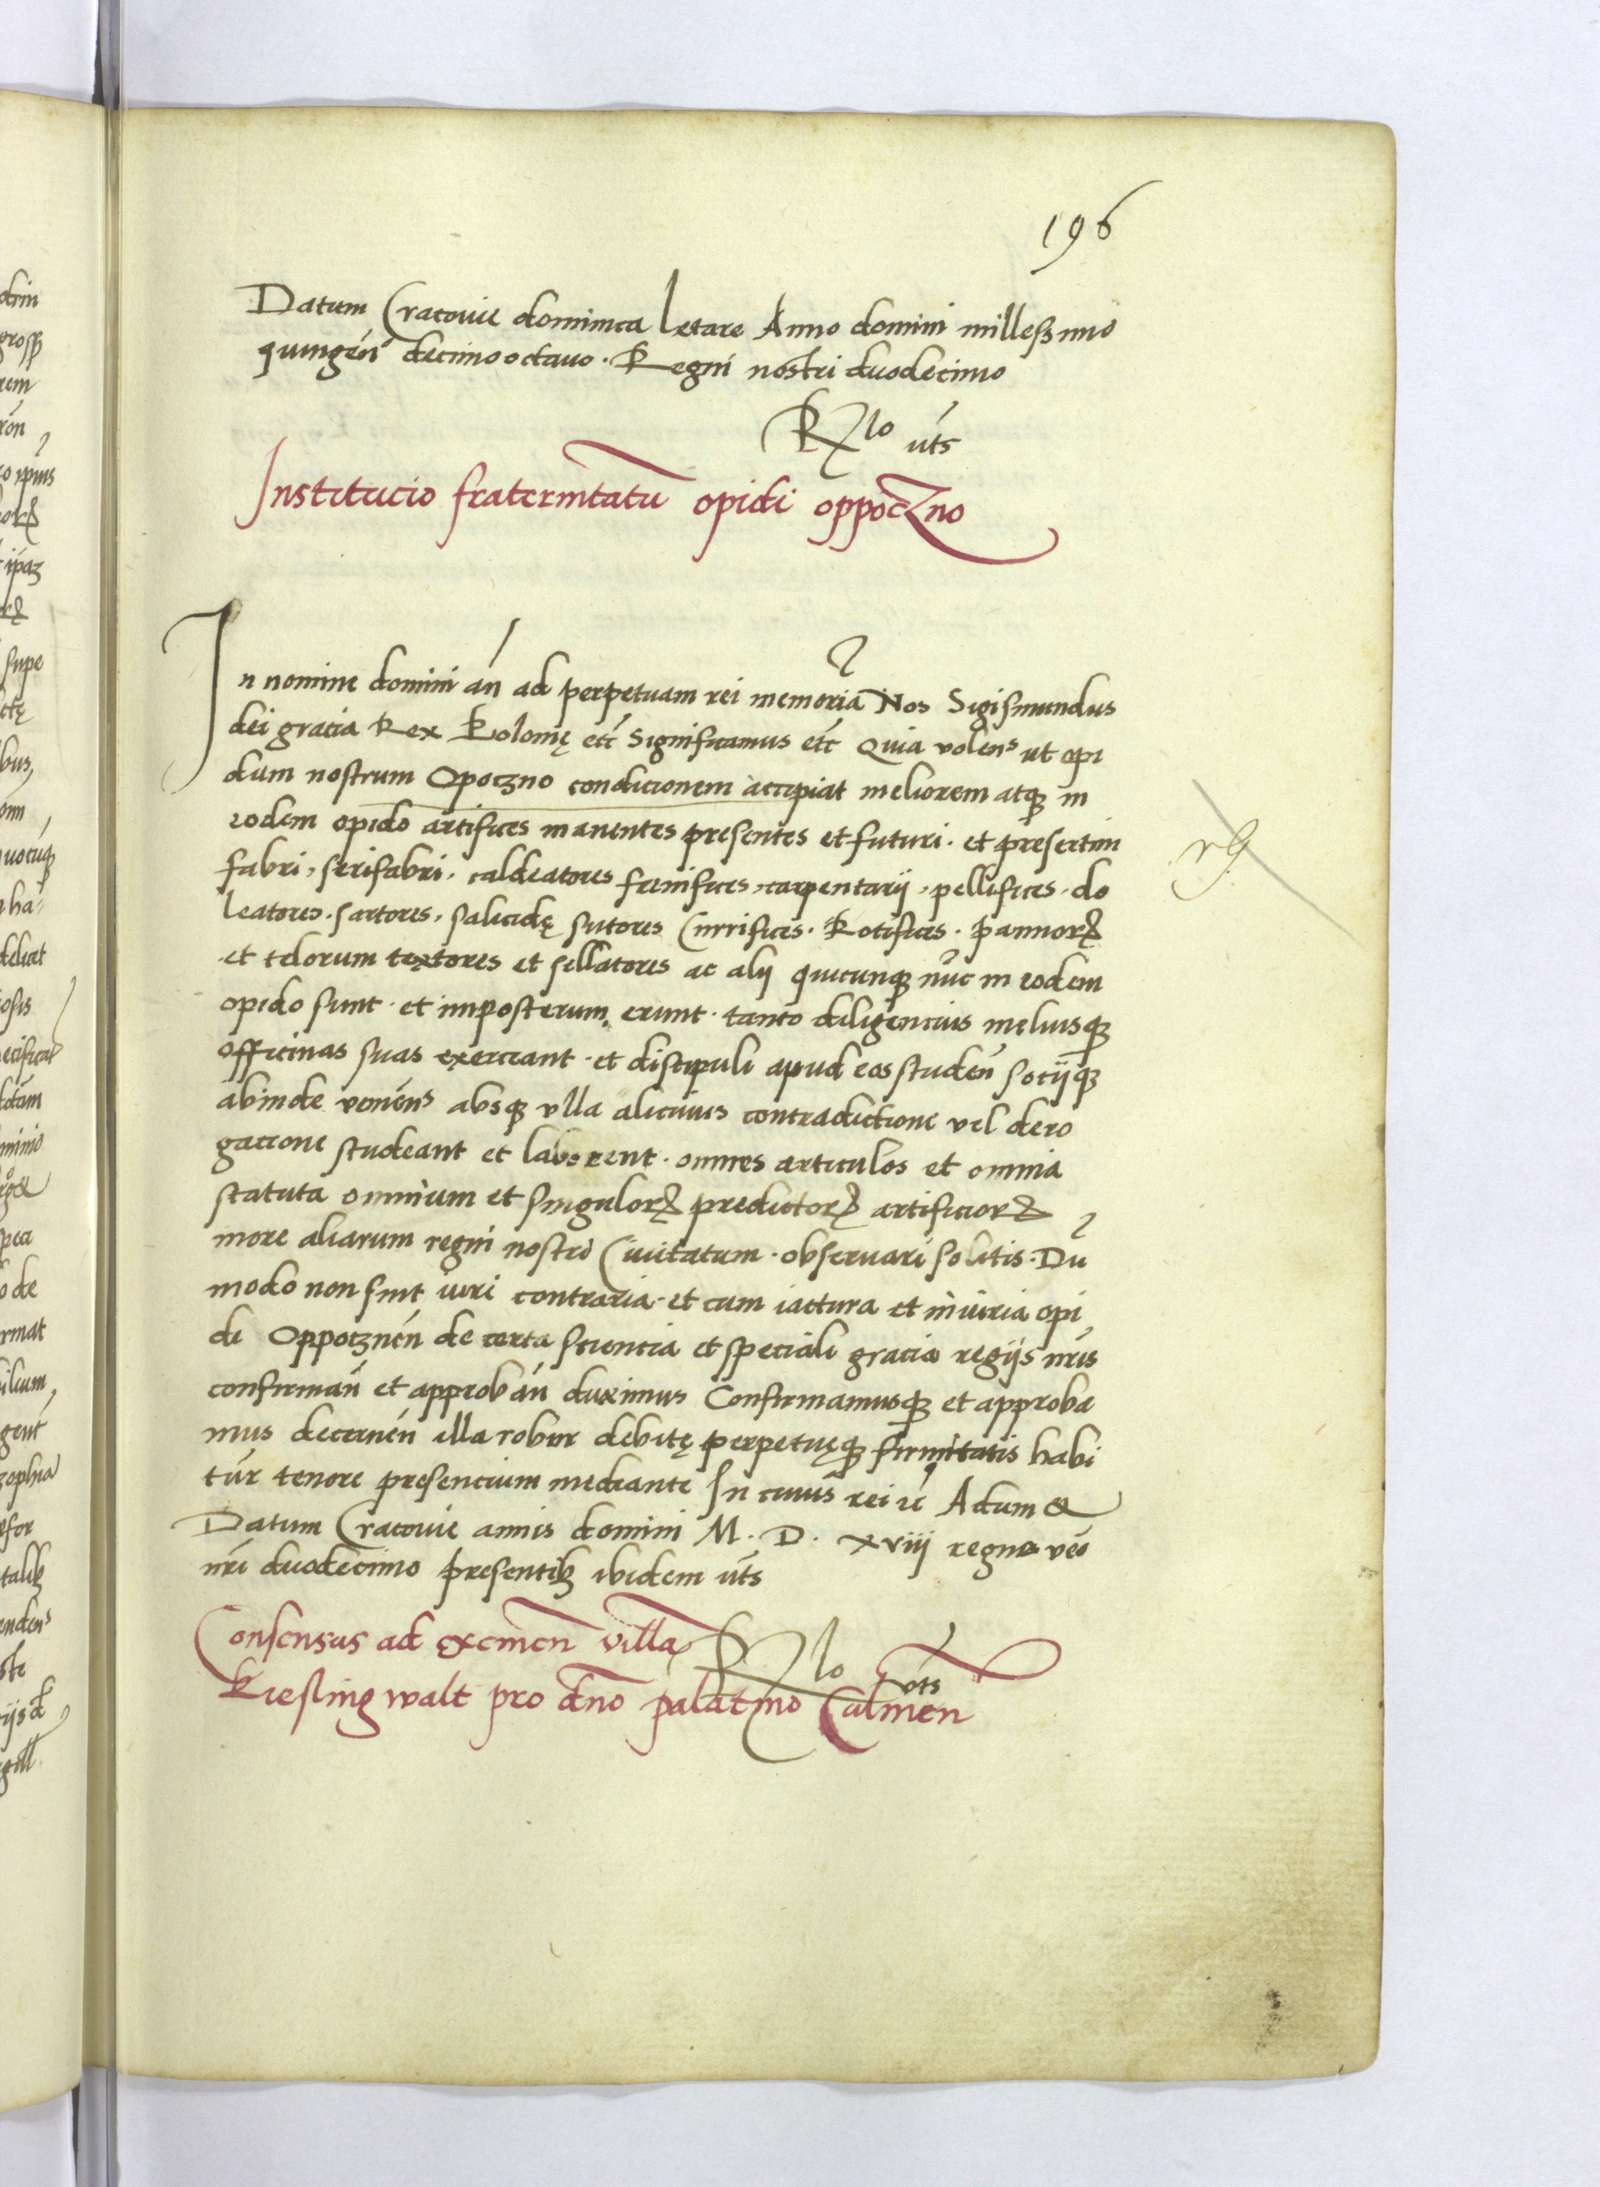 196
Datum Cracouie dominica Letare Anno domini millessimo
quingen̄ decimooctauo. Regni nostri duodecimo
Rlo uts
Institucio fraternitatū opidi oppoczno
In nomine domini an̄ ad perpetuam rei memoriā Nos Sigismundus
dei gracia Rex Polonię etc̄ Significamus etc̄ Quia volens ut opi
dum nostrum Opoczno condicionem accipiat meliorem atq; in
eodem opido artifices manentes presentes et futuri. et presertim
fabri, serifabri, caldeatores frenifices, carpentarij, pellifices. do
leatores. sartores, salicidę sutores Currifices. Rotifices. pannorꝝ
et telorum textores et sellatores ac alij quicunq; nūc in eodem
opido sunt. et imposterum erunt. tanto diligencius meliusq;
officinas suas exerceant. et discipuli apud eos studen̄ socijq;
abinde venens absq; vlla alicuius contradictione vel dero
gacione studeant et laborent. omnes articulos et omnia
statuta omnium et singulorꝝ predictorꝝ artificiorꝝ
more aliarum regni nostri Ciuitatum. obseruari solitis. Dū
modo non sint iuri contraria. et cum iactura et iniuria opi
di Oppocznen̄ de certa sciencia et speciali gracia regijs nr̄is
confirman̄ et approban̄ duximus Confirmamusq; et approba
mus decernen̄ illa robur debitę perpetuęq; firmitatis habi
tur̄ tenore presencium mediante In cuius rei &c Actum &
Datum Cracouie annis domini M. D. xviij regno vēo
nr̄i duodecimo presentib; ibidem uts
Rlo uts
Consensus ad exemen̄ villā
Kieslingwalt pro dn̄o palatino Calmen̄